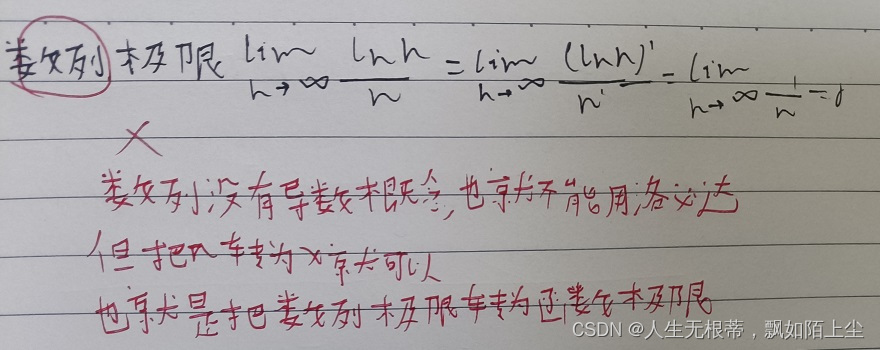 数列极限 lim n→∞ ln n / n = lim n→∞ (ln n)' / n' = lim n→∞ 1/n = 0
×
数列没有导数概念,也就不能用洛必达
但把n转为x就可以
也就是把数列极限转为函数极限
CSDN @人生无根蒂，飘如陌上尘